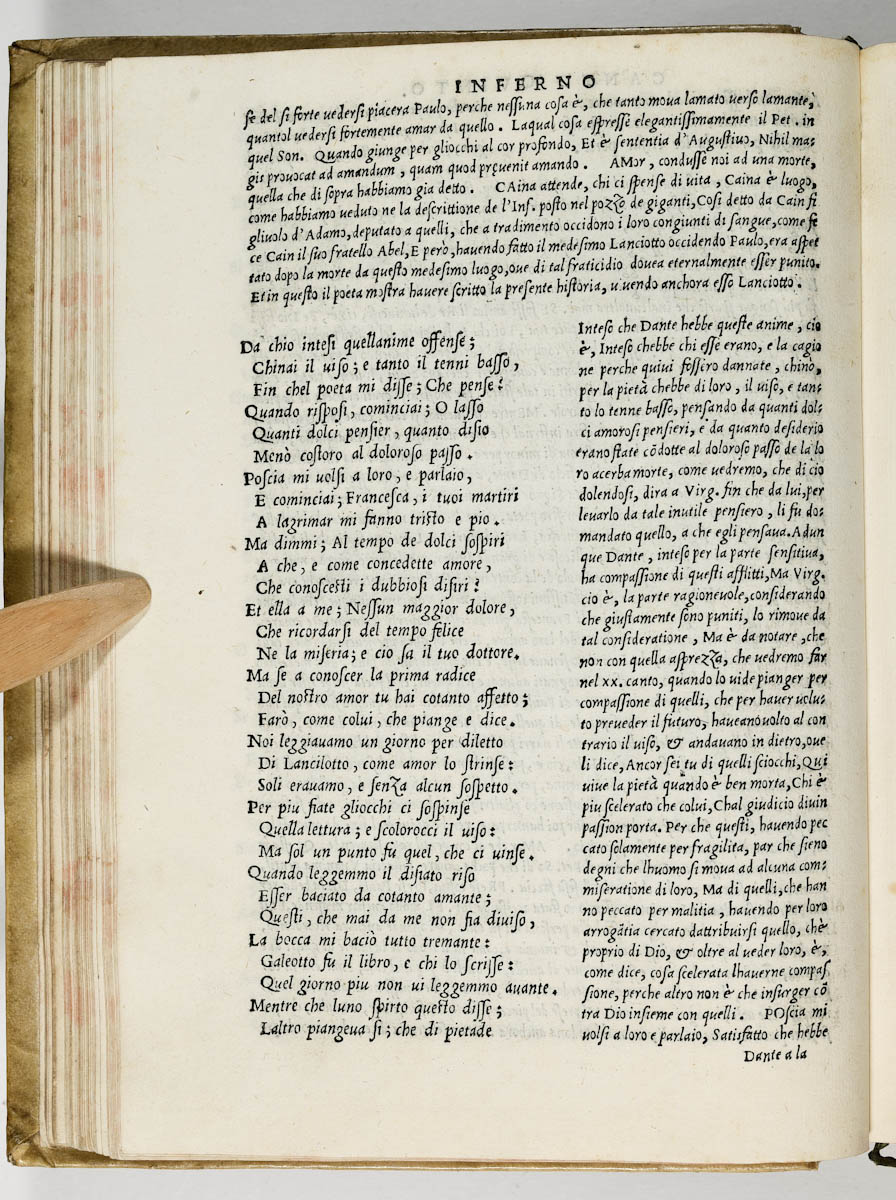 INFERNO
se del si forte uedersi piacera Paulo, perche nessuna cosa è, che tanto moua lamato uerso lamante,
quantol uedersi fortemente amar da quello. Laqual cosa espresse elegantissimamente il Pet. in
quel Son. Quando giunge per gliocchi al cor profondo, Et è sententia d'Augustiuo, Nihil ma=
gis prouocat ad amandum, quam quod pręuenit amando. AMor, condusse noi ad una morte,
quella che di sopra habbiamo gia detto. CAina attende, chi ci spense di uita, Caina è luogo,
come habbiamo ueduto ne la descrittione de l'Inf. posto nel pozzo de giganti, Cosi detto da Cain fi
gliuolo d'Adamo, deputato a quelli, che a tradimento occidono i loro congiunti di sangue, come fe
ce Cain il suo fratello Abel, E però, hauendo fatto il medesimo Lanciotto occidendo Paulo, era aspet
tato dopo la morte da questo medesimo luogo, oue di tal fraticidio douea eternalmente esser punito.
Et in questo il poeta mostra hauere scritto la presente historia, uiuendo anchora esso Lanciotto.
Da chio intesi quellanime offense;
Chinai il uiso; e tanto il tenni basso,
Fin chel poeta mi disse; Che pense?
Quando risposi, cominciai; O lasso
Quanti dolci pensier, quanto disio
Menò costoro al doloroso passo.
Poscia mi uolsi a loro, e parlaio,
E cominciai; Francesca, i tuoi martiri
A lagrimar mi fanno tristo e pio.
Ma dimmi; Al tempo de dolci sospiri
A che, e come concedette amore,
Che conoscesti i dubbiosi disiri?
Et ella a me; Nessun maggior dolore,
Che ricordarsi del tempo felice
Ne la miseria; e cio sa il tuo dottore.
Ma se a conoscer la prima radice
Del nostro amor tu hai cotanto affetto;
Farò, come colui, che piange e dice.
Noi leggiauamo un giorno per diletto
Di Lancilotto, come amor lo strinse:
Soli erauamo, e senza alcun sospetto.
Per piu fiate gliocchi ci sospinse
Quella lettura; e scolorocci il uiso:
Ma sol un punto fu quel, che ci uinse.
Quando leggemmo il disiato riso
Esser baciato da cotanto amante;
Questi, che mai da me non fia diuiso,
La bocca mi baciò tutto tremante:
Galeotto fu il libro, e chi lo scrisse:
Quel giorno piu non ui leggemmo auante.
Mentre che luno spirto questo disse;
Laltro piangeua si; che di pietade
Inteso che Dante hebbe queste anime, cio
è, Inteso chebbe chi esse erano, e la cagio
ne perche quiui fossero dannate, chinò,
per la pietà chebbe di loro, il uiso, e tan=
to lo tenne basso, pensando da quanti dol=
ci amorosi pensieri, e da quanto desiderio
erano state cōdotte al doloroso passo de la lo
ro acerba morte, come uedremo, che di cio
dolendosi, dira a Virg. fin che da lui, per
leuarlo da tale inutile pensiero, li fu do=
mandato quello, a che egli pensaua. Adun
que Dante, inteso per la parte sensitiua,
ha compassione di questi afflitti, Ma Virg.
cio è, la parte ragioneuole, considerando
che giustamente sono puniti, lo rimoue da
tal consideratione, Ma è da notare, che
non con quella asprezza, che uedremo far
nel xx. canto, quando lo uide pianger per
compassione di quelli, che per hauer uolu=
to preueder il futuro, haueano uolto al con
trario il uiso, & andauano in dietro, oue
li dice, Ancor sei tu di quelli sciocchi, Qui
uiue la pietà quando è ben morta, Chi è
piu scelerato che colui, Chal giudicio diuin
passion porta. Per che questi, hauendo pec
cato solamente per fragilita, par che sieno
degni che lhuomo si moua ad alcuna com=
miseratione di loro, Ma di quelli, che han
no peccato per malitia, hauendo per loro
arrogātia cercato dattribuirsi quello, chè
proprio di Dio, & oltre al ueder loro, è,
come dice, cosa scelerata lhauerne compas
sione, perche altro non è che insurger cō
tra Dio insieme con quelli. POscia mi
uolsi a loro e parlaio, Satisfatto che hebbe
Dante a la